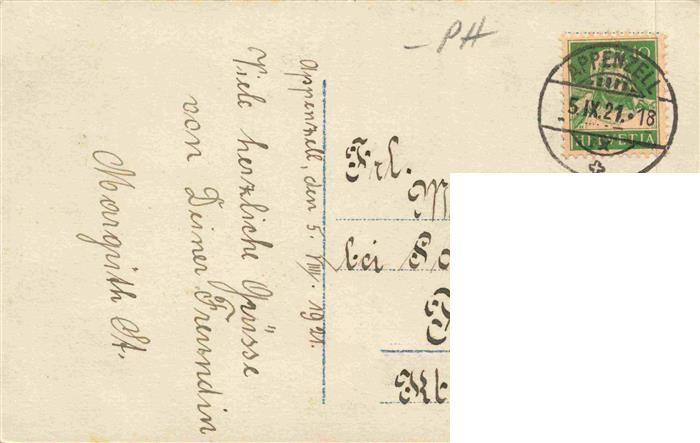 - PH
10
HELVETIA
APPENZELL
5.IX.21.-18
Appenzell, den 5. VIII. 1921.
Viele herzliche Grüsse
von Deiner Freundin
Margrith St.
Frl.
bei